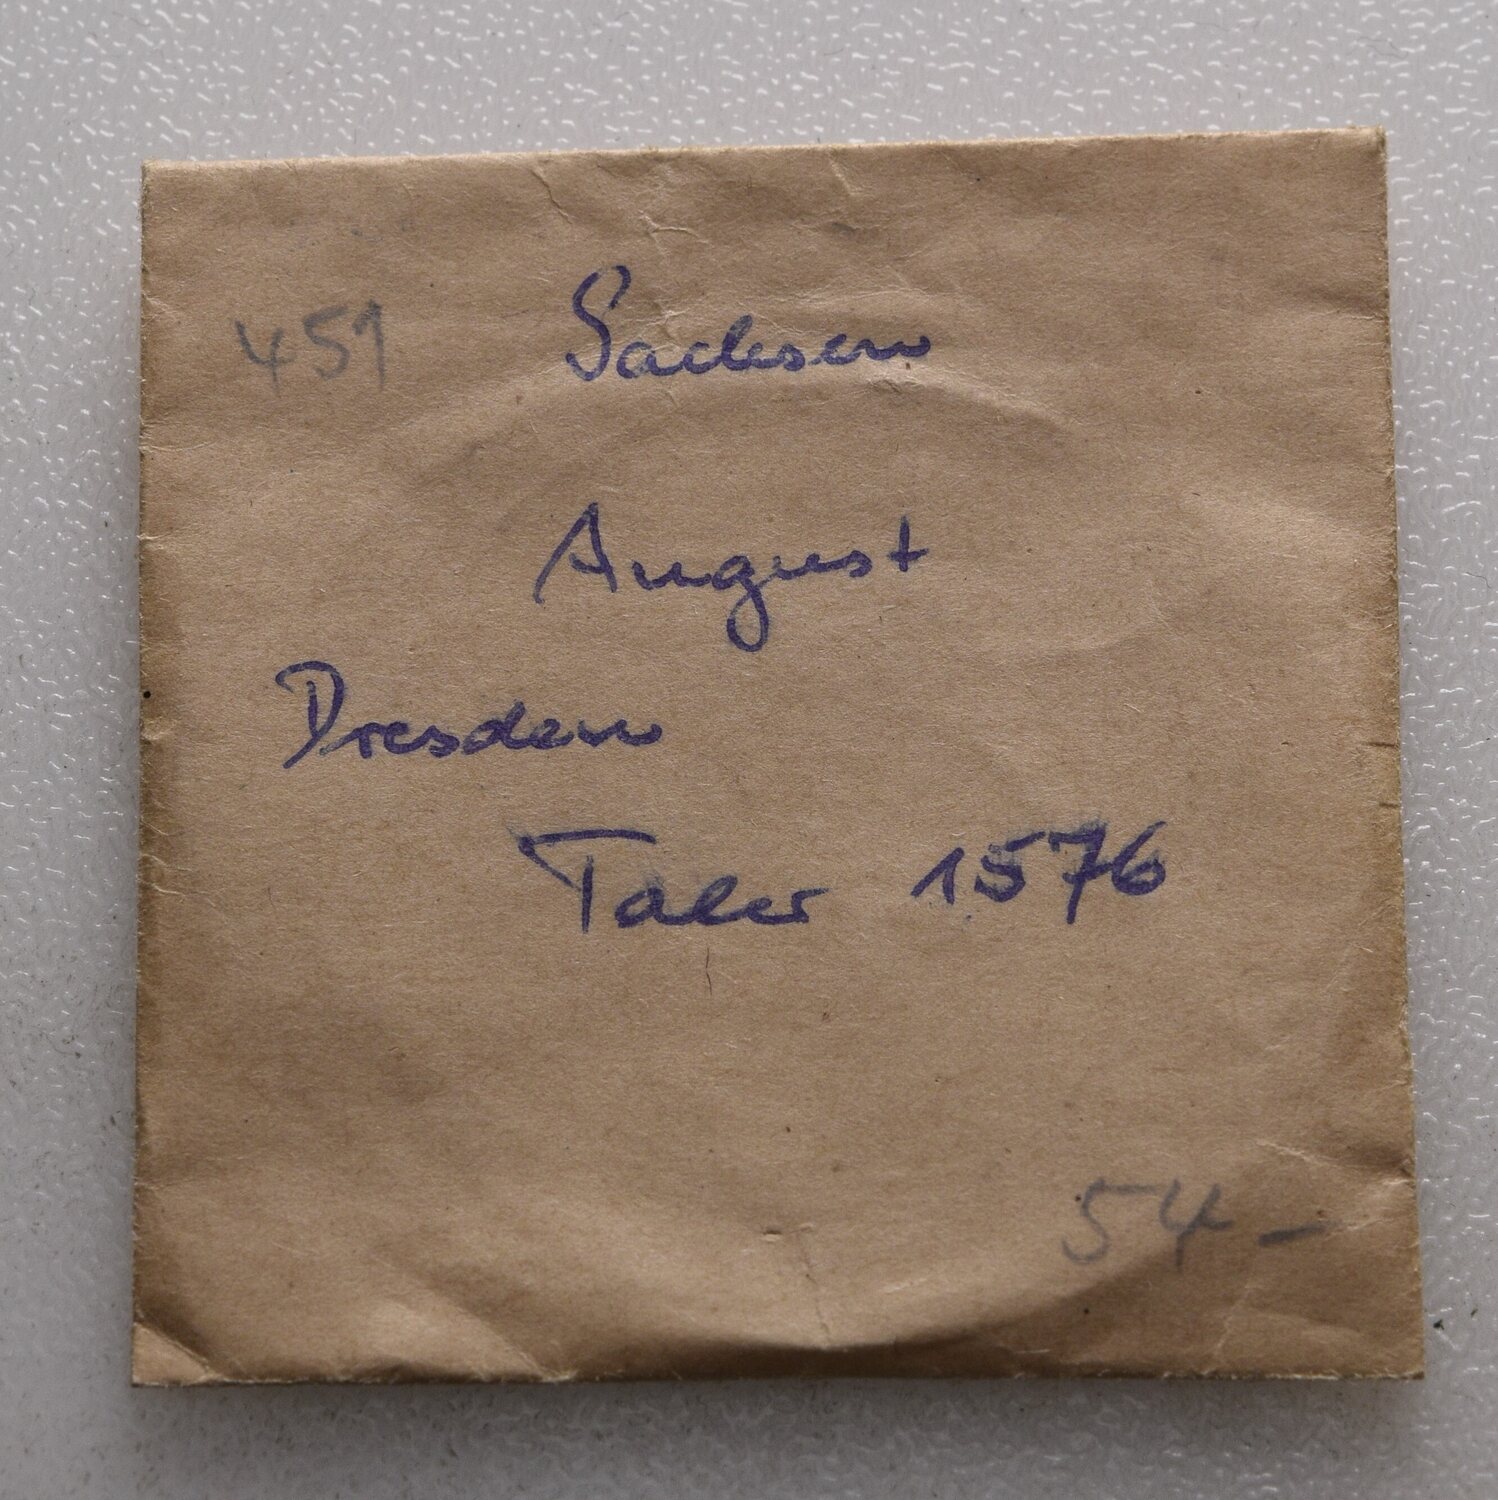 451
Sachsen
August
Dresden
Taler 1576
54-